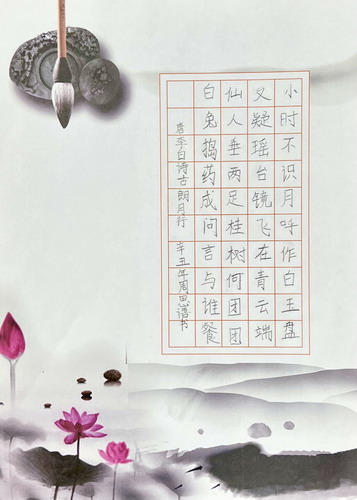 小时不识月呼作白玉盘
又疑瑶台镜飞在青云端
仙人垂两足桂树何团团
白兔捣药成问言与谁餐
唐李白诗古朗月行 辛丑年周思谱书